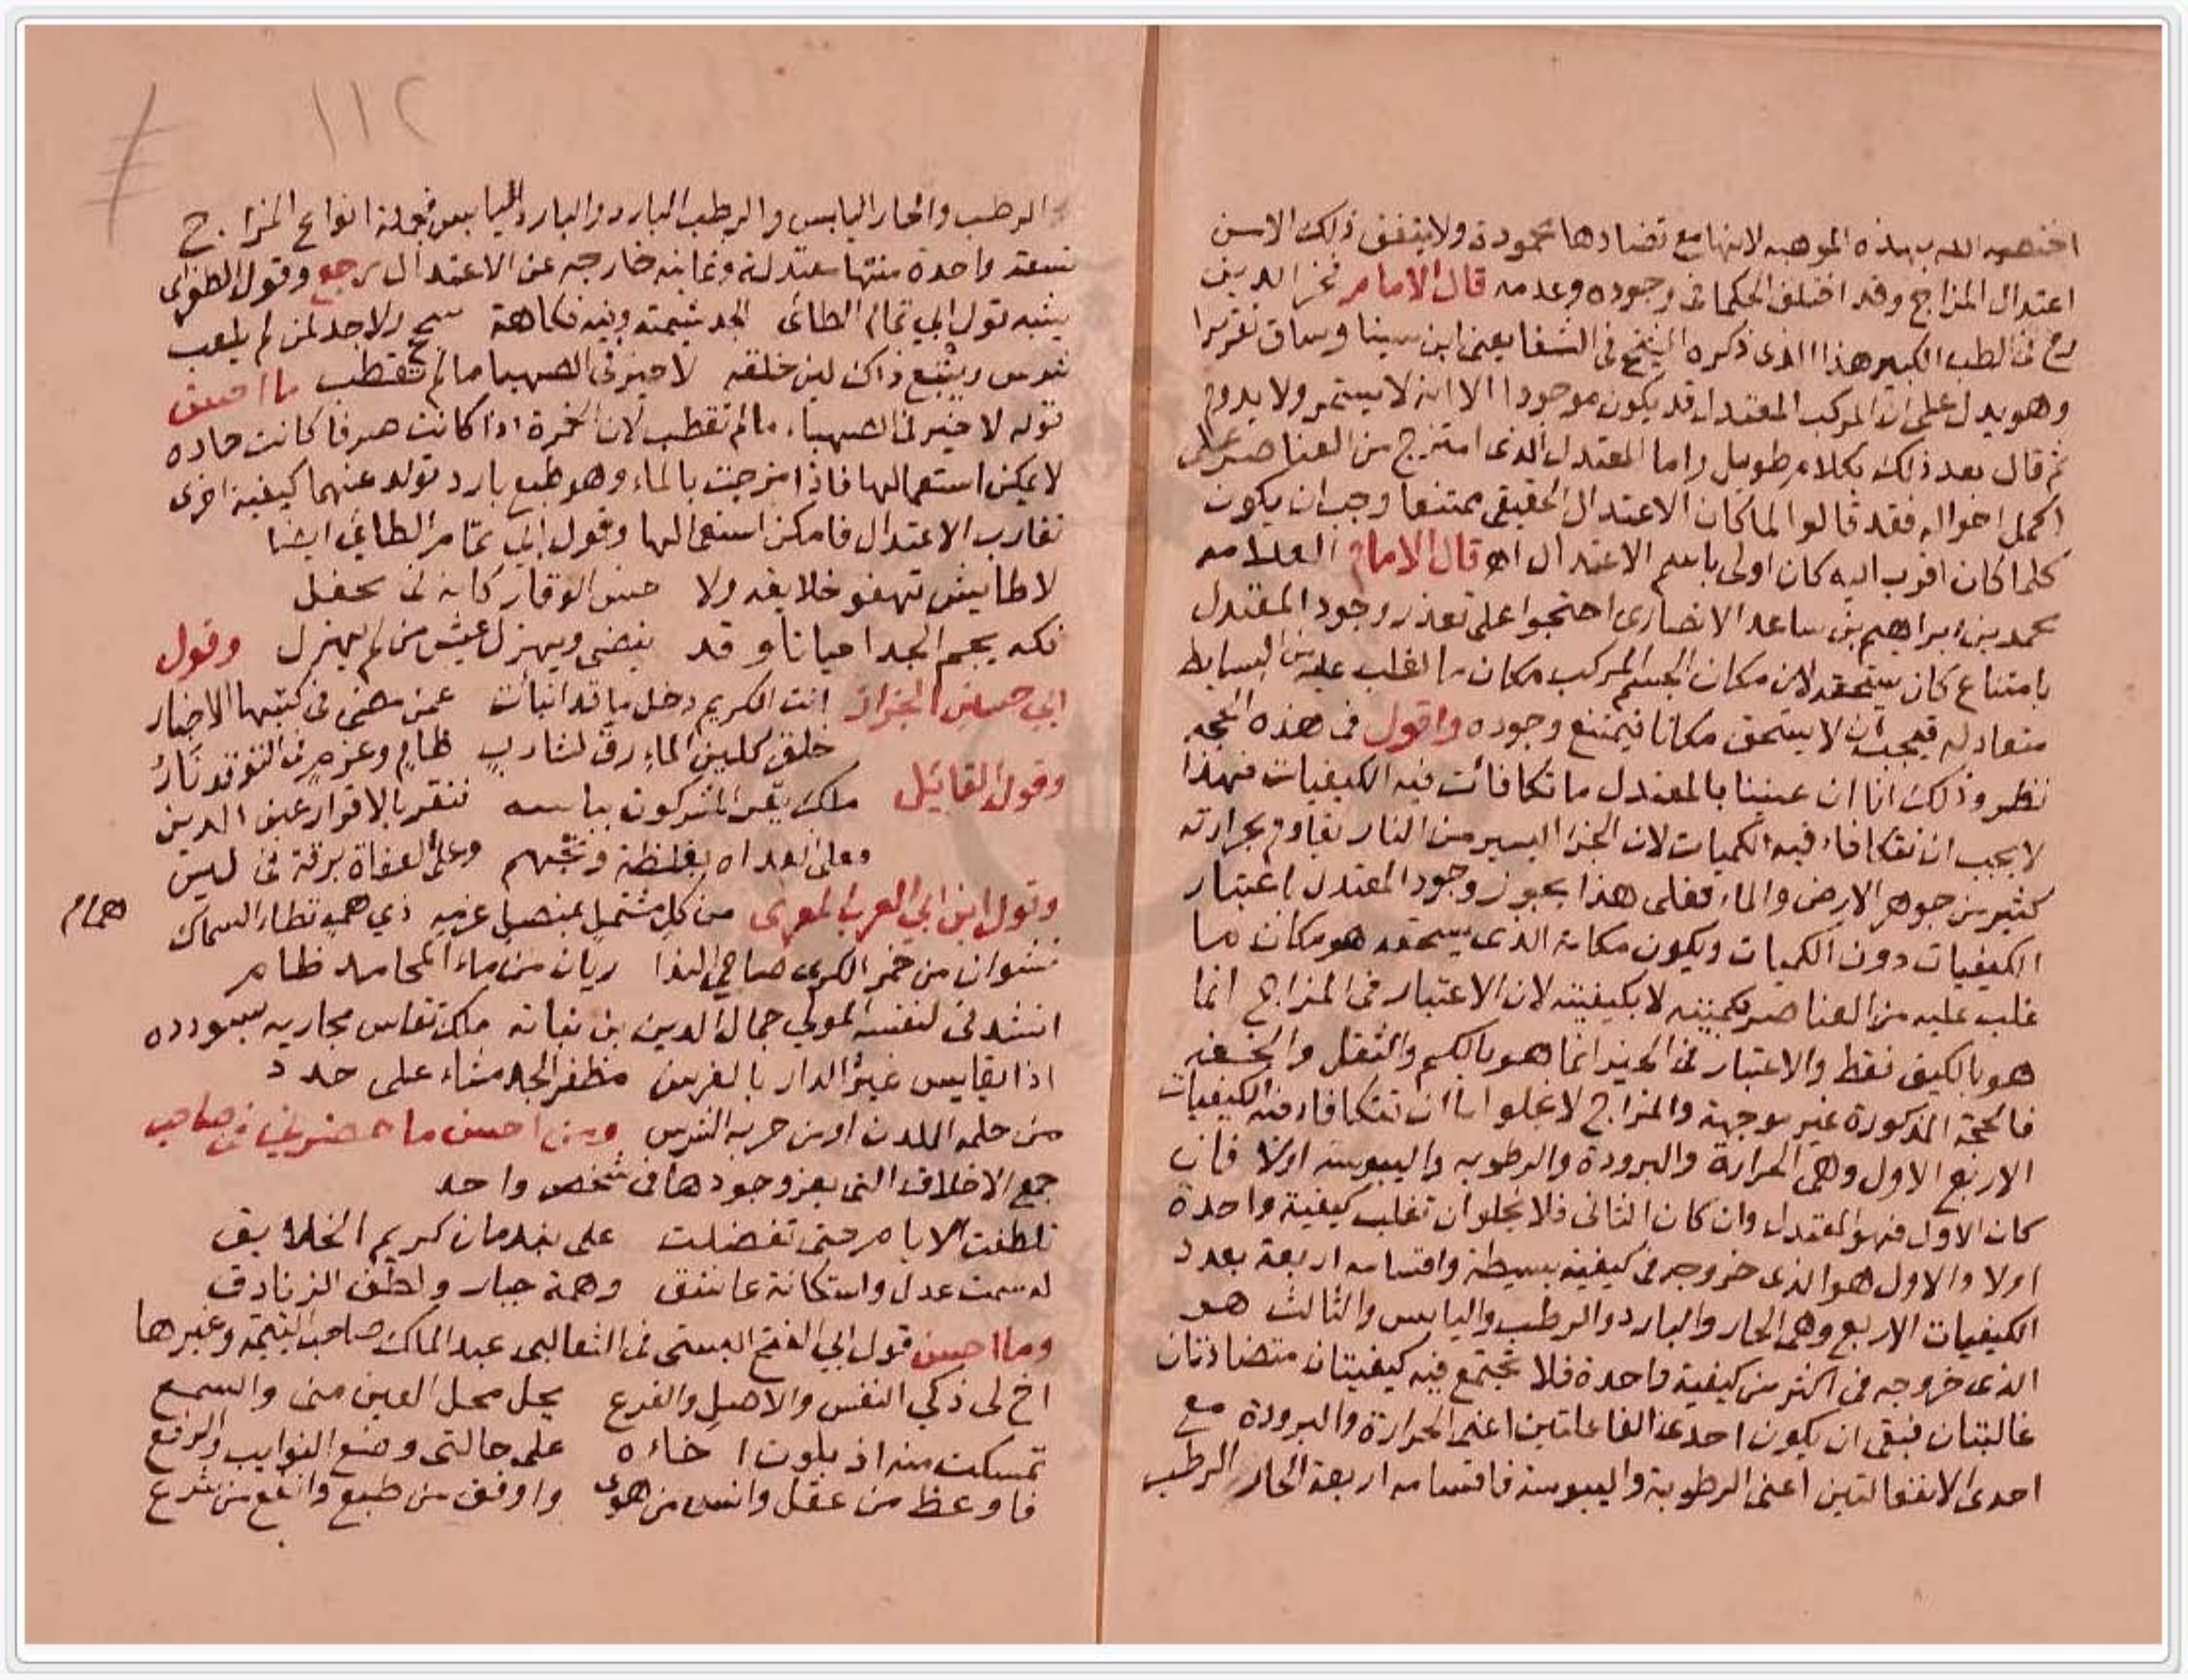 اختصه الله بهذه الموهبه لانها مع تضادها محمودة ولا يتفق ذلك الا من
اعتدال المزاج وقد اختلف الحكما فى وجوده وعدمه قال الامام فخر الدين
رح فى الطب الكبير هذا الذى ذكره الشيخ فى الشفا يعنى ابن سينا وساق تقريرا
وهو يدل على ان المركب المعتدل قد يكون موجودا الا انه لا يستمر ولا يدوم
ثم قال بعد ذلك بكلام طويل واما المعتدل الذى امتزج من العناصر على
اكمل احواله فقد قالوا لما كان الاعتدال الحقيقى ممتنعا وجب ان يكون
كلما كان اقرب اليه كان اولى باسم الاعتدال اه قال الامام العلامه
محمد بن ابراهيم بن ساعد الانصارى احتجوا على تعذر وجود المعتدل
بامتناع كان يستحقه لان مكان الجسم المركب مكان ما الغلب عليه من البسايط
متعادله فيجب ان لا يستحق مكانا فيمتنع وجوده واقول فى هذه الحجه
نظر وذلك انا ان عنينا بالمعتدل ما تكافأت فيه الكيفيات فهذا
لا يجب ان تتكافاء فيه الكميات لان الجزا اليسير من النار يقاوم بحرارته
كثير من جوهر الارض والماء فعلى هذا يجوز وجود المعتدل باعتبار
الكيفيات دون الكميات ويكون مكانه الذى يستحقه هو مكان ما
غلب عليه من العناصر بكميته لا بكيفيته لان الاعتبار فى المزاج انما
هو بالكيف فقط والاعتبار فى الحيز انما هو بالكم والثقل والخفه
فالحجة المذكورة غير موجهة والمزاج لا يخلو اما ان تتكافاء فيه الكيفيات
الاربع الاول وهى الحرارة والبرودة والرطوبه واليبوسه اولا فان
كان الاول فهو المعتدل وان كان الثانى فلا يخلو ان تغلب كيفية واحدة
اولا والاول هو الذى خروجه فى كيفية بسيطة واقسامه اربعة بعدد
الكيفيات الاربع وهى الحار والبارد والرطب واليابس والثالث هو
الذى خروجه فى اكثر من كيفية واحدة فلا تجتمع فيه كيفيتان متضادتان
غالبتان فبقى ان يكون احدى الفاعلتين اعنى الحرارة والبرودة مع
احدى الانفعالتين اعنى الرطوبة واليبوسة فاقسامه اربعة الحار الرطب
١١٢
الرطب والحار اليابس والرطب البارد والبارد اليابس فجملة انواع المزاج
تسعة واحدة منها معتدلة وثمانيه خارجه عن الاعتدال رجع وقول الطغراى
يشبه قول ابي تمام الطائى الجد شيمته وفيه فكاهة سجح ولا جد لمن لم يلعب
شرس ويتبع ذاك لين خلقه لا خير فى الصهبا ما لم تقطب ما احسن
قوله لا خير فى الصهباء ما لم تقطب لان الخمرة اذا كانت صرفا كانت حاده
لا يمكن استعمالها فاذا مزجت بالماء وهو طبع بارد تولد عنهما كيفية اخرى
تقارب الاعتدال فامكن استعمالها وقول ابي تمام الطاي ايضا
لا طايش تهفو خلايقه ولا خشن الوقار كانه فى محفل
فكه يجم الجد احيانا وقد ينضى ويهزل عيش من لم يهزل وقول
ابي حسين الجزار انت الكريم دخل ما قد انبأت عمن مضى فى كتبها الاخبار
خلق كلين الماء رق لشارب ظام وعزم فى التوقد نار
وقول القائل ملك يقر المشركون بباسه فتقر بالاقرار عين الدين
وعلى العداه بغلظة وتجهم وعلى العفاة برقة فى لين
وقول ابن ابي العرب المعرى من كل مشتمل بمنصل عزمه ذي همم تطأ السماك همام
نشوان من خمر الكرى صاحي الندا ريان من ماء المحامد ظام
انشدنى لنفسه المولى جمال الدين بن نباته ملك تقاس مجاريه بسودده
اذا يقايس غير الدار بالفرس مظفر الجد مشاء على حدد
من حلمه اللدن او من حربه الشرس ومن احسن ما حضرني فى صاحب
جمع الاخلاق التى يعز وجودها فى شخص واحد
تلطفت الايام حتى تفضلت على بندمان كريم الخلايق
له سمت عدل واستكانة عاشق وهمة جبار ولطف الزنادق
وما احسن قول ابي الفتح البستى فى الثعالبى عبد الملك صاحب اليتيمة وغيرها
اخ لى ذكي النفس والاصل والفرع يحل محل العين منى والسمع
تمسكت منه اذ بلوت اخاءه على حالتى وضع النوايب والرفع
فاوعظ من عقل وانس من هوى واوفق من طبع وانفع من شرع